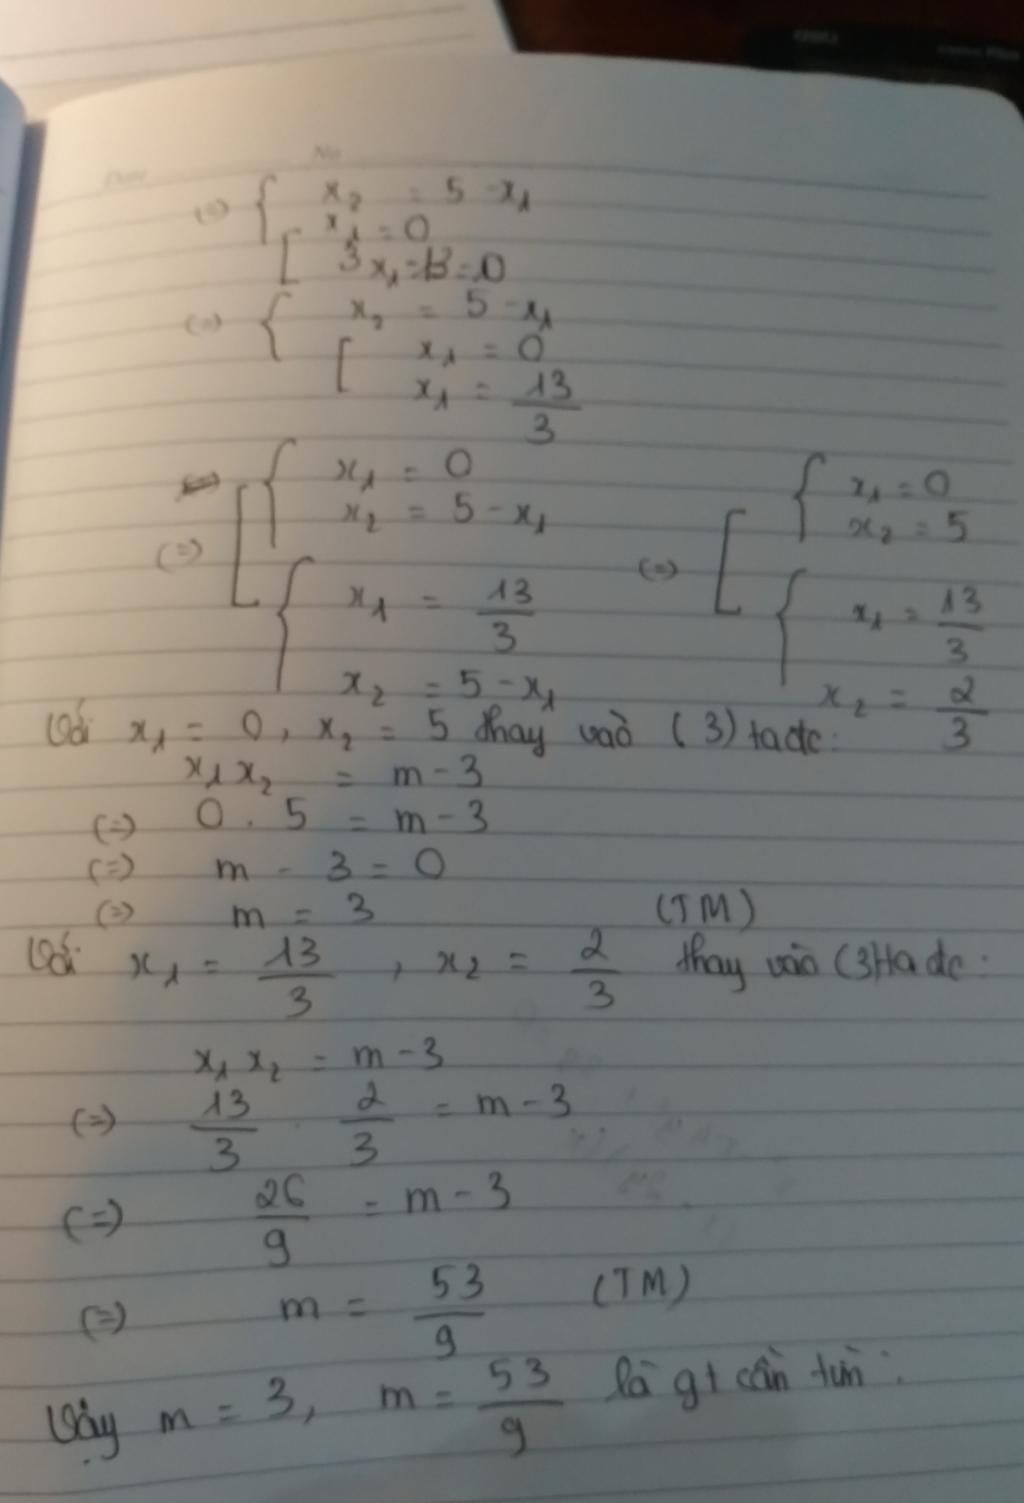 No
(=) { x₂ = 5 - x₁
[ x₁ = 0
3x₁ - 13 = 0
(=) { x₂ = 5 - x₁
[ x₁ = 0
x₁ = 13/3
(=) [ { x₁ = 0
x₂ = 5 - x₁
{ x₁ = 13/3
x₂ = 5 - x₁
(=) [ { x₁ = 0
x₂ = 5
{ x₁ = 13/3
x₂ = 2/3
Với x₁ = 0, x₂ = 5 thay vào (3) ta dc:
x₁x₂ = m - 3
(=) 0 . 5 = m - 3
(=) m - 3 = 0
(=) m = 3 (TM)
Với x₁ = 13/3, x₂ = 2/3 thay vào (3) ta dc:
x₁x₂ = m - 3
(=) 13/3 . 2/3 = m - 3
(=) 26/9 = m - 3
(=) m = 53/9 (TM)
Vậy m = 3, m = 53/9 là gt cần tìm.